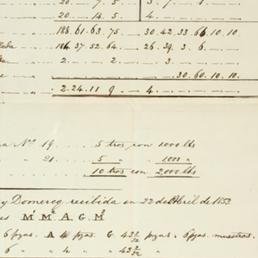 20. 7. 5 3. 7. 1.
20. 14. 5. 4.
186. 61. 63. 75. 30. 42. 33. 66. 10. 10.
186. 37. 52. 64. 26. 39. 3. 6.
2. 2.
30. 60. 10. 10.
2. 24. 11 9 4.
Nº 19 5 tros con 1000 lbs
21. 5 " 1000 "
10 tros con 2,000 lbs
y Domercq recibida en 22 de Abril de 1853
M. M. A. G. M.
6 pzas. A pzas. G 42/32 pzas. 6 pzas. muestras.
6 " " " 42/32 "